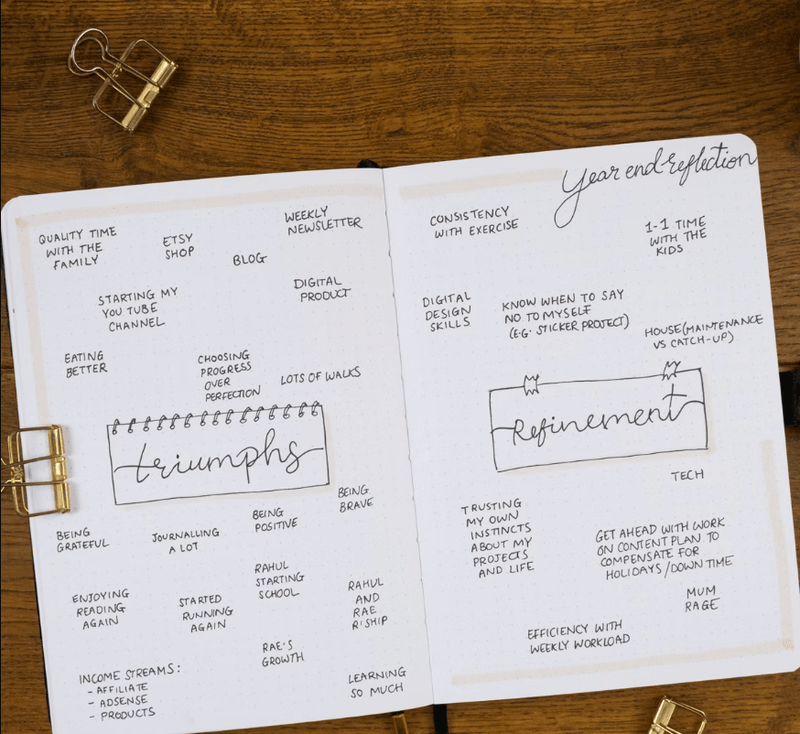 QUALITY TIME
WITH THE
FAMILY
ETSY
SHOP
BLOG
WEEKLY
NEWSLETTER
STARTING MY
YOU TUBE
CHANNEL
DIGITAL
PRODUCT
EATING
BETTER
CHOOSING
PROGRESS
OVER
PERFECTION
LOTS OF WALKS
triumphs
BEING
GRATEFUL
JOURNALLING
A LOT
BEING
POSITIVE
BEING
BRAVE
ENJOYING
READING
AGAIN
STARTED
RUNNING
AGAIN
RAHUL
STARTING
SCHOOL
RAHUL
AND
RAE
R'SHIP
RAE'S
GROWTH
INCOME STREAMS:
- AFFILIATE
- ADSENSE
- PRODUCTS
LEARNING
SO MUCH
Year end reflection
CONSISTENCY
WITH EXERCISE
1-1 TIME
WITH THE
KIDS
DIGITAL
DESIGN
SKILLS
KNOW WHEN TO SAY
NO TO MYSELF
(E.G. STICKER PROJECT)
HOUSE (MAINTENANCE
VS CATCH-UP)
Refinement
TECH
TRUSTING
MY OWN
INSTINCTS
ABOUT MY
PROJECTS
AND LIFE
GET AHEAD WITH WORK
ON CONTENT PLAN TO
COMPENSATE FOR
HOLIDAYS/DOWN TIME
MUM
RAGE
EFFICIENCY WITH
WEEKLY WORKLOAD